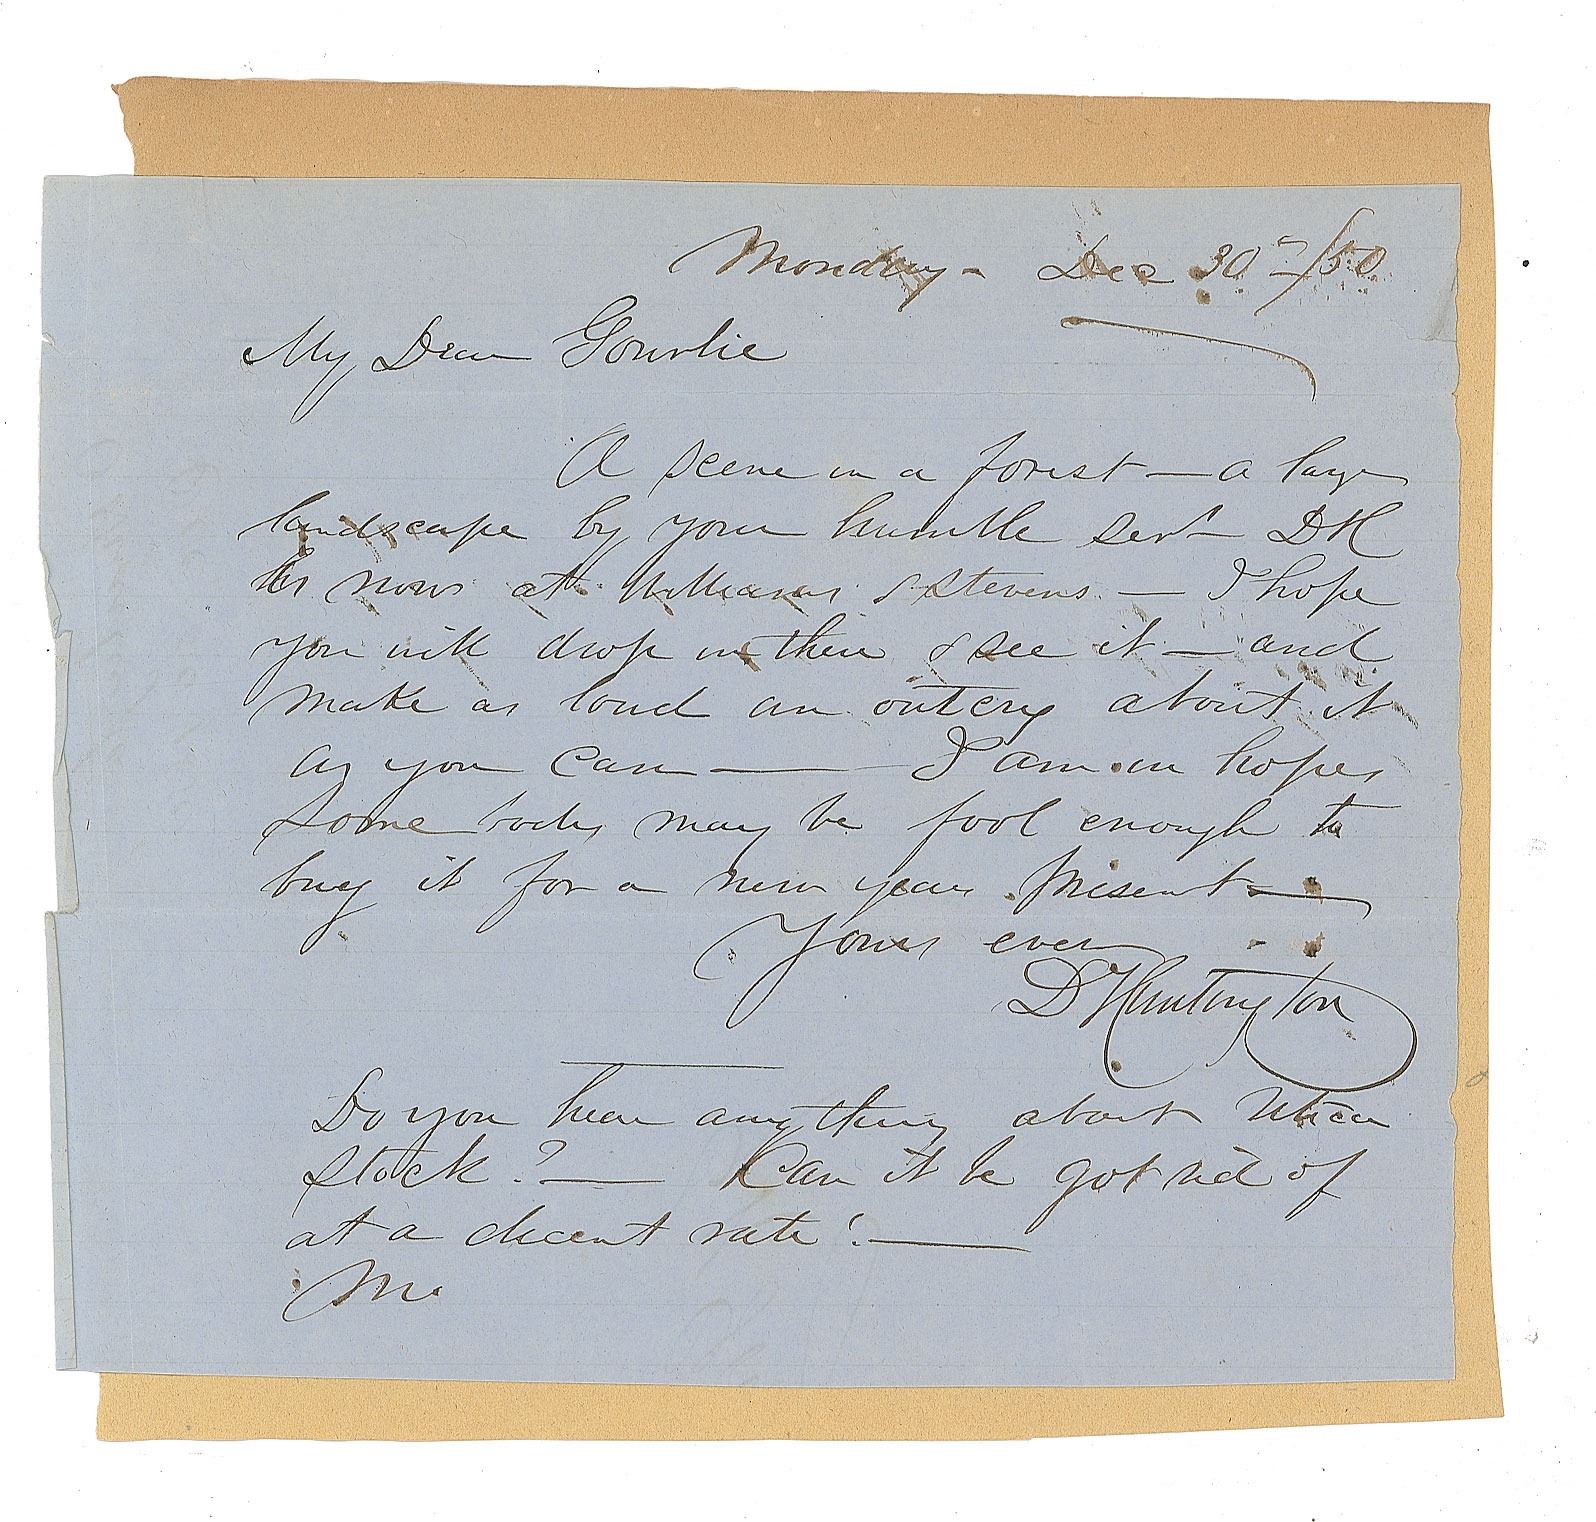 Monday - Dec 30th /50
My Dear Gourlie
A scene in a forest — a large
landscape by your humble servt DH
is now at Williams & Stevens — I hope
you will drop in there & see it — and
make as loud an outcry about it
as you can — I am in hopes
some body may be fool enough to
buy it for a new years present —
Yours ever
D Huntington
Do you hear anything about Utica
stock? — Can it be got rid of
at a decent rate? —